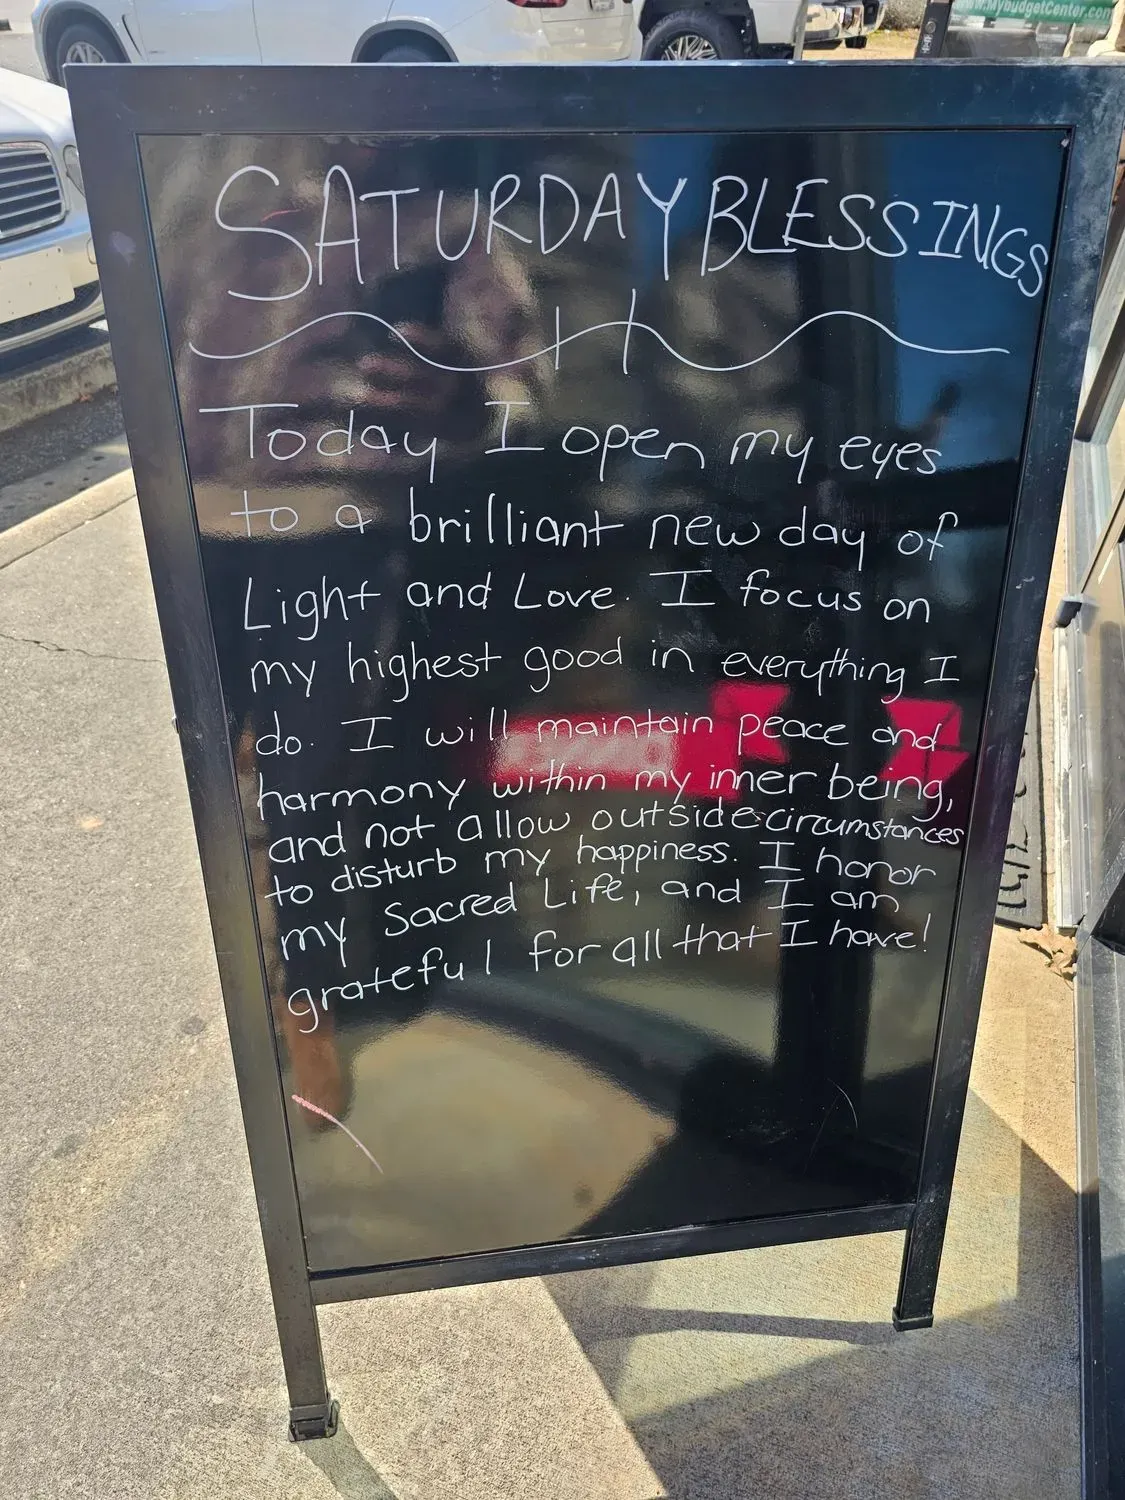 www.MybudgetCenter.com
SATURDAY BLESSINGS
Today I open my eyes
to a brilliant new day of
Light and Love. I focus on
my highest good in everything I
do. I will maintain peace and
harmony within my inner being,
and not allow outside circumstances
to disturb my happiness. I honor
my Sacred Life, and I am
grateful for all that I have!